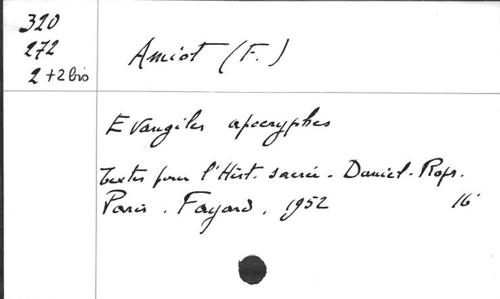 320
272
2 + 2 bis
Amiot (F.)
Evangiles apocryphes
textes pour l'Hist. sacrée - Daniel-Rops.
Paris . Fayard . 1952 16°